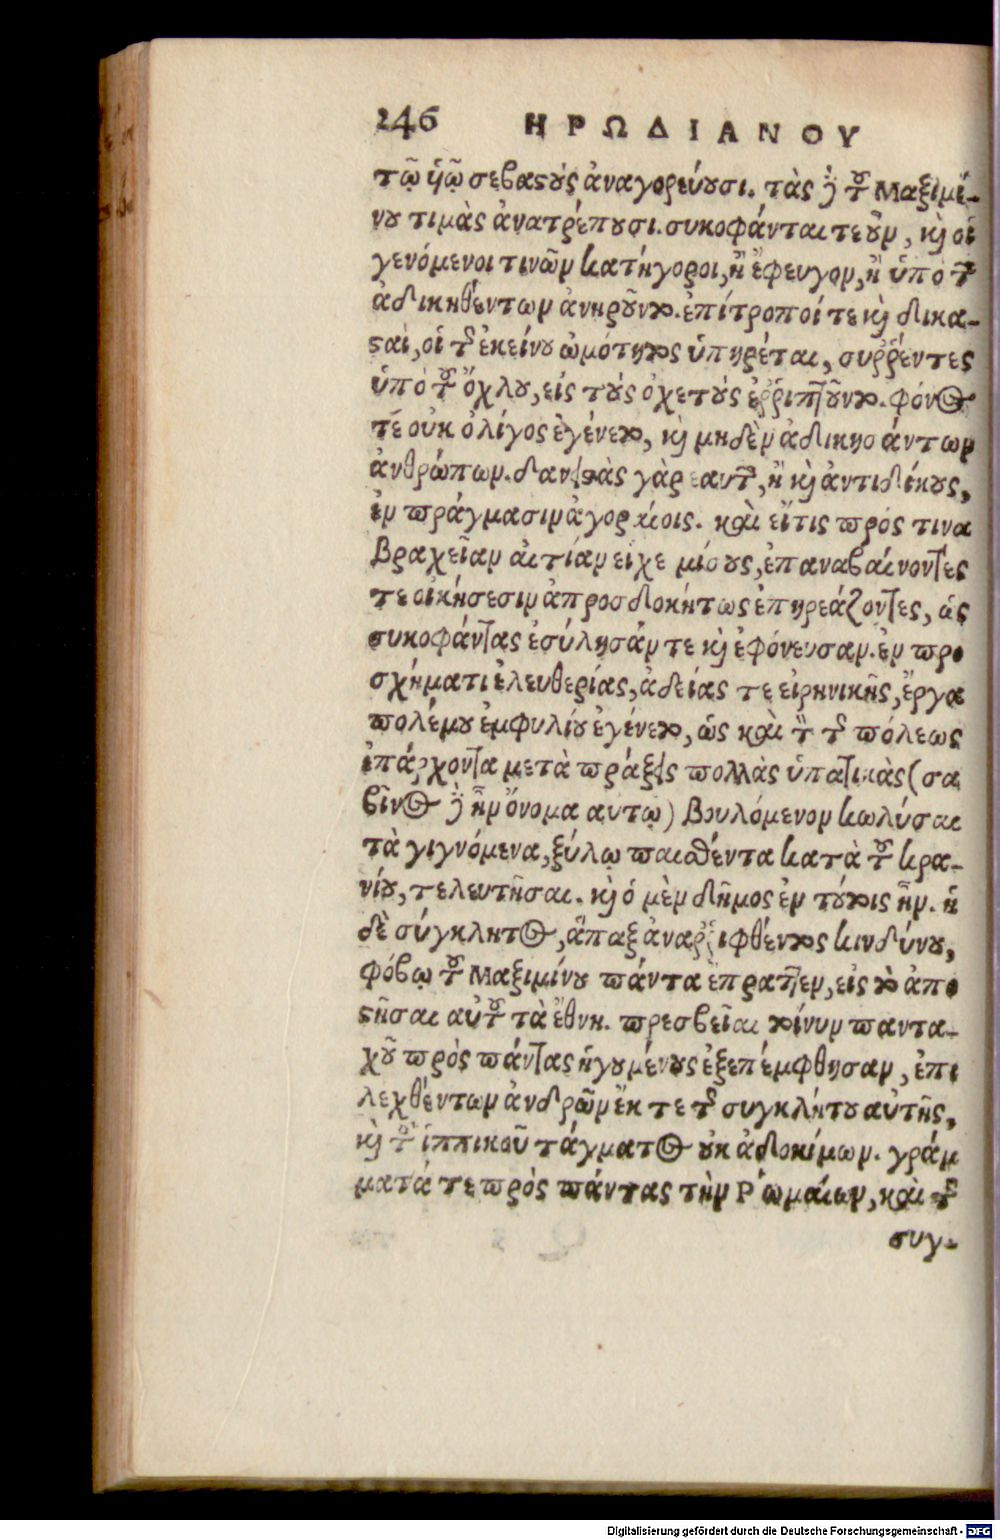 246 ΗΡΩΔΙΑΝΟΥ
τῷ ὑῷ σεβαστοὺς ἀναγορεύουσι. τὰς δὲ τοῦ Μαξιμί-
νου τιμὰς ἀνατρέπουσι. συκοφάνται τε οὖν, καὶ οἱ
γενόμενοι τινῶν κατήγοροι, ἢ ἔφευγον, ἢ ὑπὸ τῶν
ἀδικηθέντων ἀνῃροῦντο. ἐπίτροποί τε καὶ δικα-
σταὶ, οἱ τῆς ἐκείνου ὠμότητος ὑπηρέται, συρέντες
ὑπὸ τοῦ ὄχλου, εἰς τοὺς ὀχετοὺς ἐῤῥιπτοῦντο. φόνος
τέ οὐκ ὀλίγος ἐγένετο, καὶ μηδὲν ἀδικησάντων
ἀνθρώπων. δανειστὰς γὰρ ἑαυτῶν, ἢ καὶ ἀντιδίκους,
ἐν πράγμασιν ἀγοραίοις. καὶ εἴτις πρός τινα
βραχεῖαν αἰτίαν εἶχε μίσους, ἐπαναβαίνοντες
τε οἰκήσεσιν ἀπροσδοκήτως ἐπηρεάζοντες, ὡς
συκοφάντας ἐσύλησάν τε καὶ ἐφόνευσαν. ἐν προ
σχήματι ἐλευθερίας, ἀδείας τε εἰρηνικῆς, ἔργα
πολέμου ἐμφυλίου ἐγένετο, ὡς καὶ τὸν τῆς πόλεως
ἐπάρχοντα μετὰ πράξεις πολλὰς ὑπατικὰς (σα
βῖνος δὲ ἦν ὄνομα αυτῷ) βουλόμενον κωλύσαι
τὰ γιγνόμενα, ξύλῳ παιθέντα κατὰ τοῦ κρα-
νίου, τελευτῆσαι. καὶ ὁ μὲν δῆμος ἐν τούτοις ἦν. ἡ
δὲ σύγκλητος, ἅπαξ ἀναῤῥιφθέντος κινδύνου,
φόβῳ τοῦ Μαξιμίνου πάντα ἔπραττεν, εἰς τὸ ἀπο
στῆσαι αὐτοῦ τὰ ἔθνη. πρεσβεῖαι τοίνυν παντα-
χοῦ πρὸς πάντας ἡγουμένους ἐξεπέμφθησαν, ἐπι
λεχθέντων ἀνδρῶν ἔκ τε τῆς συγκλήτου αὐτῆς,
καὶ τοῦ ἱππικοῦ τάγματος οὐκ ἀδοκίμων. γράμ
ματά τε πρὸς πάντας τὴν Ῥωμαίων, καὶ τῆς
συγ-
Digitalisierung gefördert durch die Deutsche Forschungsgemeinschaft - DFG